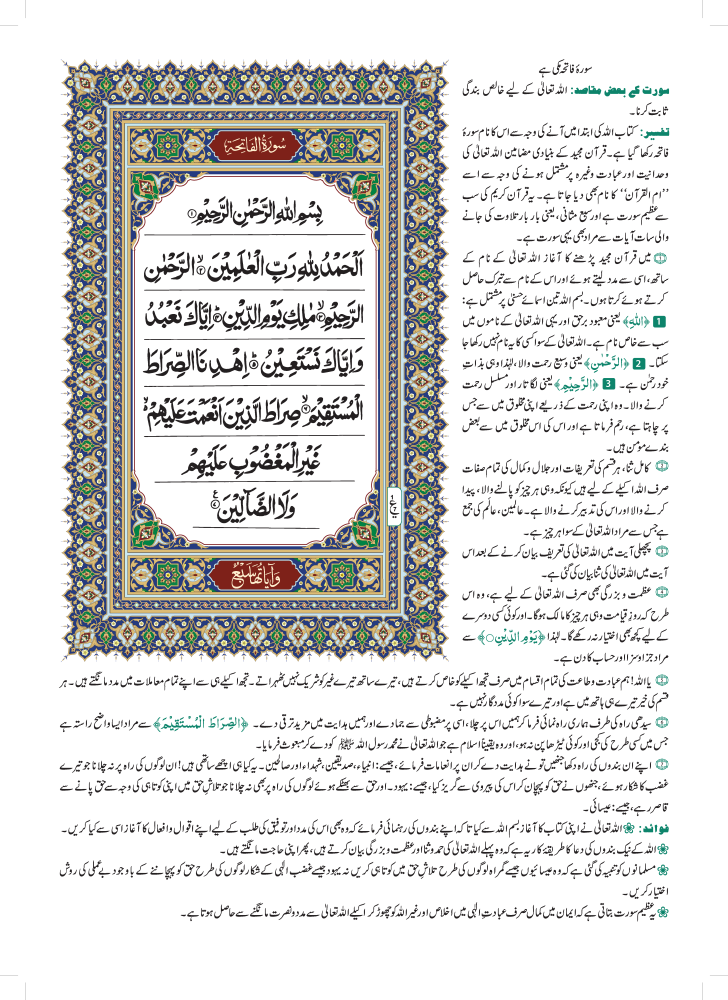 سورۂ فاتحہ مکی ہے
سورت کے بعض مقاصد: اللہ تعالیٰ کے لیے خالص بندگی
ثابت کرنا۔
تفسیر: کتاب اللہ کی ابتدا میں آنے کی وجہ سے اس کا نام سورۂ
فاتحہ رکھا گیا ہے۔ قرآن مجید کے بنیادی مضامین اللہ تعالیٰ کی
وحدانیت اور عبادت وغیرہ پر مشتمل ہونے کی وجہ سے اسے
’’ام القرآن‘‘ کا نام بھی دیا جاتا ہے۔ یہ قرآن کریم کی سب
سے عظیم سورت ہے اور سبع مثانی، یعنی بار بار تلاوت کی جانے
والی سات آیات سے مراد بھی یہی سورت ہے۔
۱ میں قرآن مجید پڑھنے کا آغاز اللہ تعالیٰ کے نام کے
ساتھ، اسی سے مدد لیتے ہوئے اور اس کے نام سے تبرک حاصل
کرتے ہوئے کرتا ہوں۔ بسم اللہ تین اسمائے حسنیٰ پر مشتمل ہے:
1 ﴿اللّٰهِ﴾ یعنی معبود برحق اور یہی اللہ تعالیٰ کے ناموں میں
سب سے خاص نام ہے۔ اللہ تعالیٰ کے سوا کسی کا یہ نام نہیں رکھا جا
سکتا۔ 2 ﴿الرَّحْمٰنِ﴾ یعنی وسیع رحمت والا، لہٰذا وہی بذاتِ
خود رحمٰن ہے۔ 3 ﴿الرَّحِيْمِ﴾ یعنی لگاتار اور مسلسل رحمت
کرنے والا۔ وہ اپنی رحمت کے ذریعے اپنی مخلوق میں سے جس
پر چاہتا ہے، رحم فرماتا ہے اور اس کی اس مخلوق میں سے بعض
بندے مومن ہیں۔
۲ کامل ثنا، ہر قسم کی تعریفات اور جلال و کمال کی تمام صفات
صرف اللہ اکیلے کے لیے ہیں کیونکہ وہی ہر چیز کو پالنے والا، پیدا
کرنے والا اور اس کی تدبیر کرنے والا ہے۔ عالمین، عالم کی جمع
ہے جس سے مراد اللہ تعالیٰ کے سوا ہر چیز ہے۔
۳ پچھلی آیت میں اللہ تعالیٰ کی تعریف بیان کرنے کے بعد اس
آیت میں اللہ تعالیٰ کی ثنا بیان کی گئی ہے۔
۴ عظمت و بزرگی بھی صرف اللہ تعالیٰ کے لیے ہے، وہ اس
طرح کہ روزِ قیامت وہی ہر چیز کا مالک ہوگا۔ اور کوئی کسی دوسرے
کے لیے کچھ بھی اختیار نہ رکھے گا۔ لہٰذا ﴿يَوْمِ الدِّيْنِ﴾ سے
مراد جزا و سزا اور حساب کا دن ہے۔
سُوْرَةُ الْفَاتِحَة
بِسْمِ اللّٰهِ الرَّحْمٰنِ الرَّحِيْمِ ۝۱
اَلْحَمْدُ لِلّٰهِ رَبِّ الْعٰلَمِيْنَ ۝۲ الرَّحْمٰنِ
الرَّحِيْمِ ۝۳ مٰلِكِ يَوْمِ الدِّيْنِ ۝۴ اِيَّاكَ نَعْبُدُ
وَاِيَّاكَ نَسْتَعِيْنُ ۝۵ اِهْدِنَا الصِّرَاطَ
الْمُسْتَقِيْمَ ۝۶ صِرَاطَ الَّذِيْنَ اَنْعَمْتَ عَلَيْهِمْ
غَيْرِ الْمَغْضُوْبِ عَلَيْهِمْ
وَلَا الضَّآلِّيْنَ ۝۷
وَآيَاتُهَا سَبْعٌ
۵ یا اللہ! ہم عبادت و طاعت کی تمام اقسام میں صرف تجھ اکیلے کو خاص کرتے ہیں، تیرے ساتھ تیرے غیر کو شریک نہیں ٹھہراتے۔ تجھ اکیلے ہی سے اپنے تمام معاملات میں مدد مانگتے ہیں۔ ہر
قسم کی خیر تیرے ہی ہاتھ میں ہے اور تیرے سوا کوئی مددگار نہیں ہے۔
۶ سیدھی راہ کی طرف ہماری راہ نمائی فرما کر ہمیں اس پر چلا، اسی پر مضبوطی سے جما دے اور ہمیں ہدایت میں مزید ترقی دے۔ ﴿الصِّرَاطَ الْمُسْتَقِيْمَ﴾ سے مراد ایسا واضح راستہ ہے
جس میں کسی طرح کی کجی اور کوئی ٹیڑھا پن نہ ہو، اور وہ یقیناً اسلام ہے جو اللہ تعالیٰ نے محمد رسول اللہ ﷺ کو دے کر مبعوث فرمایا۔
۷ اپنے ان بندوں کی راہ دکھا جنھیں تو نے ہدایت دے کر ان پر انعامات فرمائے، جیسے: انبیاء، صدیقین، شہداء اور صالحین۔ یہ کیا ہی اچھے ساتھی ہیں! ان لوگوں کی راہ پر نہ چلانا جو تیرے
غضب کا شکار ہوئے، جنھوں نے حق کو پہچان کر اس کی پیروی سے گریز کیا، جیسے: یہود۔ اور حق سے بھٹکے ہوئے لوگوں کی راہ پر بھی نہ چلانا جو تلاشِ حق میں اپنی کوتاہی کی وجہ سے حق پانے سے
قاصر رہے، جیسے: عیسائی۔
فوائد: اللہ تعالیٰ نے اپنی کتاب کا آغاز بسم اللہ سے کیا تاکہ اپنے بندوں کی رہنمائی فرمائے کہ وہ بھی اس کی مدد اور توفیق کی طلب کے لیے اپنے اقوال و افعال کا آغاز اسی سے کیا کریں۔
اللہ کے نیک بندوں کی دعا کا طریقۂ کار یہ ہے کہ وہ پہلے اللہ تعالیٰ کی حمد و ثنا اور عظمت و بزرگی بیان کرتے ہیں، پھر اپنی حاجت مانگتے ہیں۔
مسلمانوں کو تنبیہ کی گئی ہے کہ وہ عیسائیوں جیسے گمراہ لوگوں کی طرح تلاشِ حق میں کوتاہی کریں نہ یہود جیسے غضب الٰہی کے شکار لوگوں کی طرح حق کو پہچاننے کے باوجود بے عملی کی روش
اختیار کریں۔
یہ عظیم سورت بتاتی ہے کہ ایمان میں کمال صرف عبادتِ الٰہی میں اخلاص اور غیر اللہ کو چھوڑ کر اکیلے اللہ تعالیٰ سے مدد و نصرت مانگنے سے حاصل ہوتا ہے۔